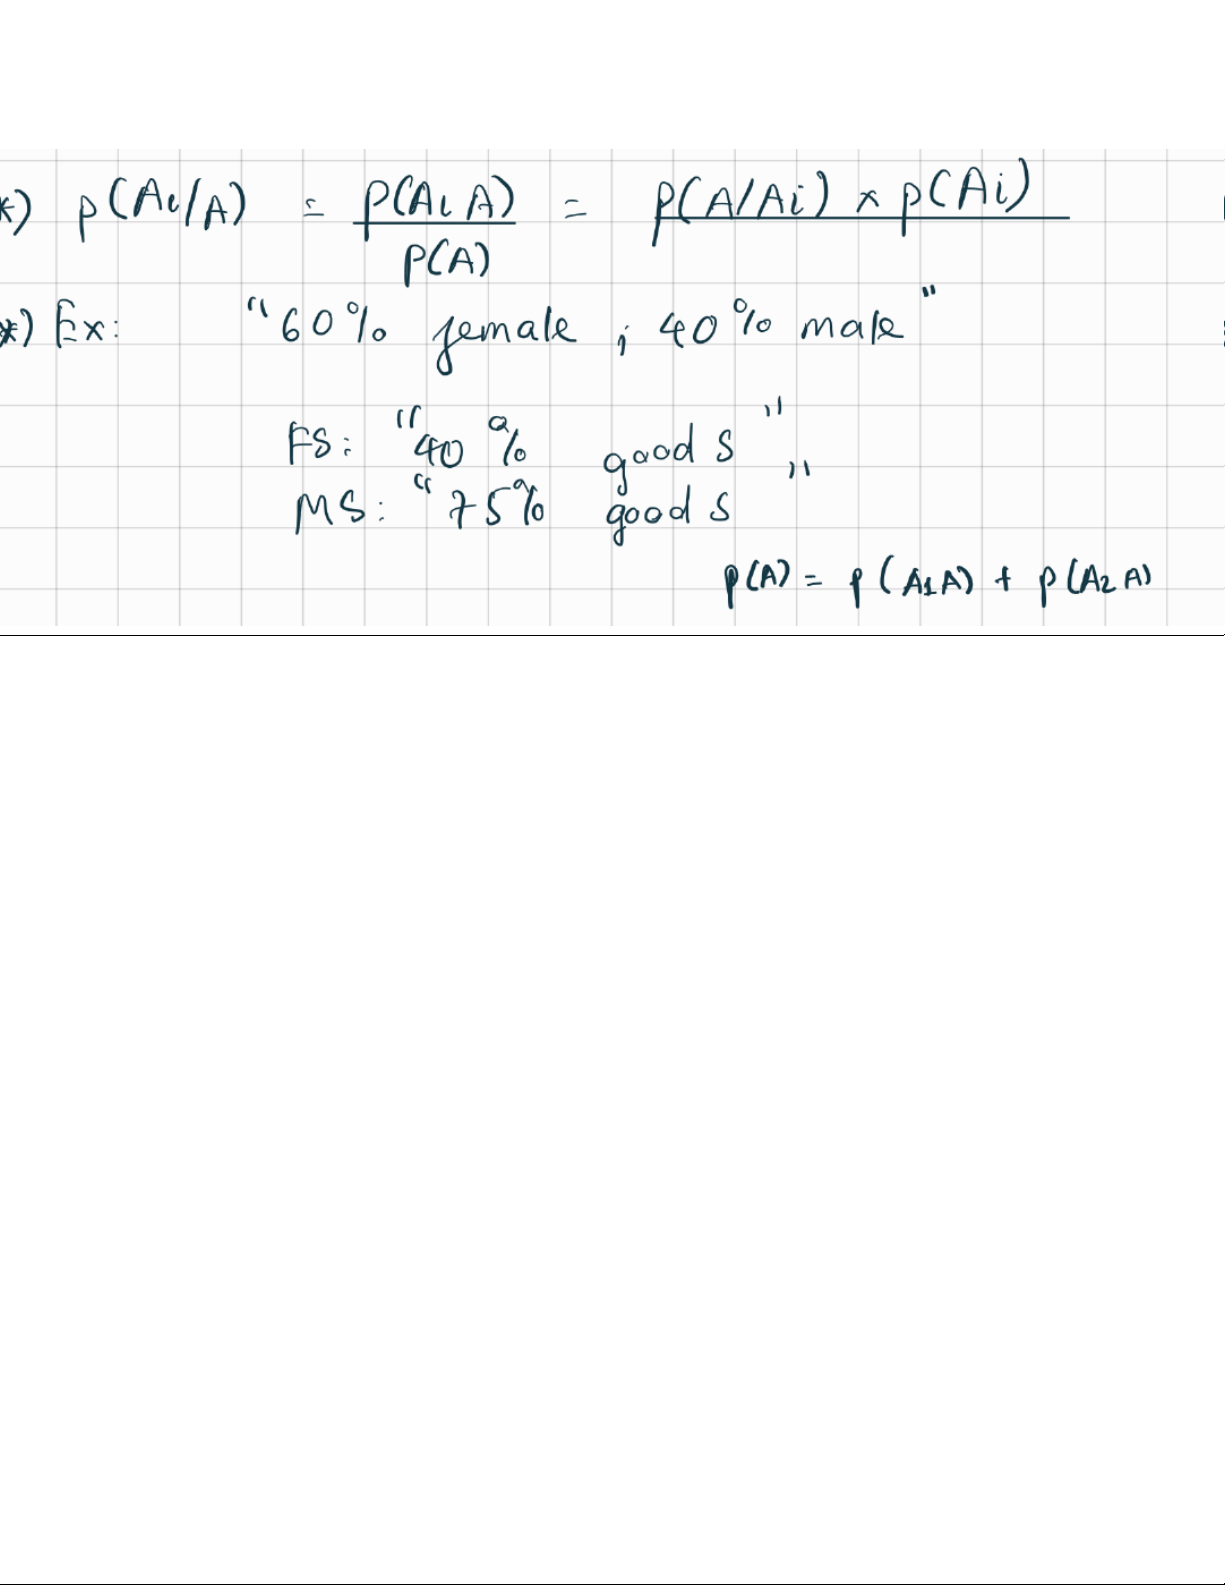 *) p(Ai/A) = p(Ai A) / p(A) = p(A/Ai) × p(Ai)
*) Ex: "60% female ; 40% male"
FS: "40% good s"
MS: "75% good s"
p(A) = p(A1A) + p(A2 A)